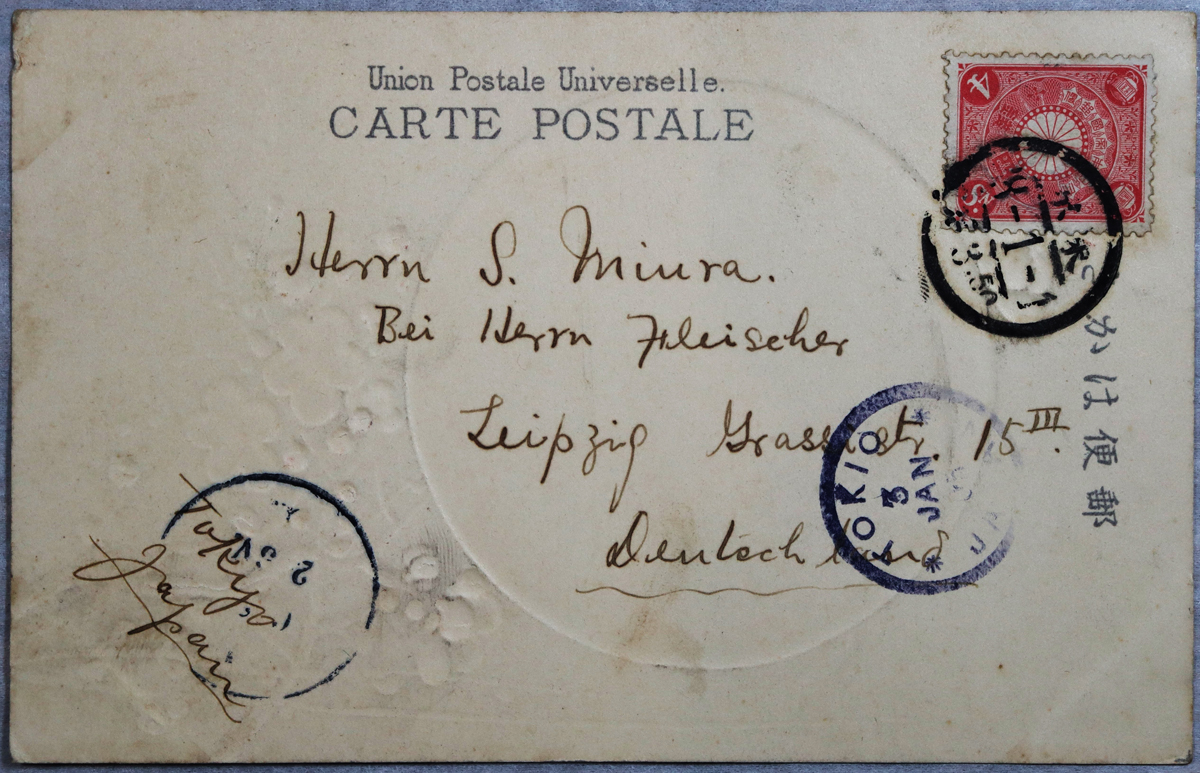 Union Postale Universelle.
CARTE POSTALE
4
Sn
Herrn S. Miura.
Bei Herrn Fleischer
Leipzig Grassistr. 15 III.
Deutschland
Tokyo
Japan
TOKIO
3
JAN
郵便はかき